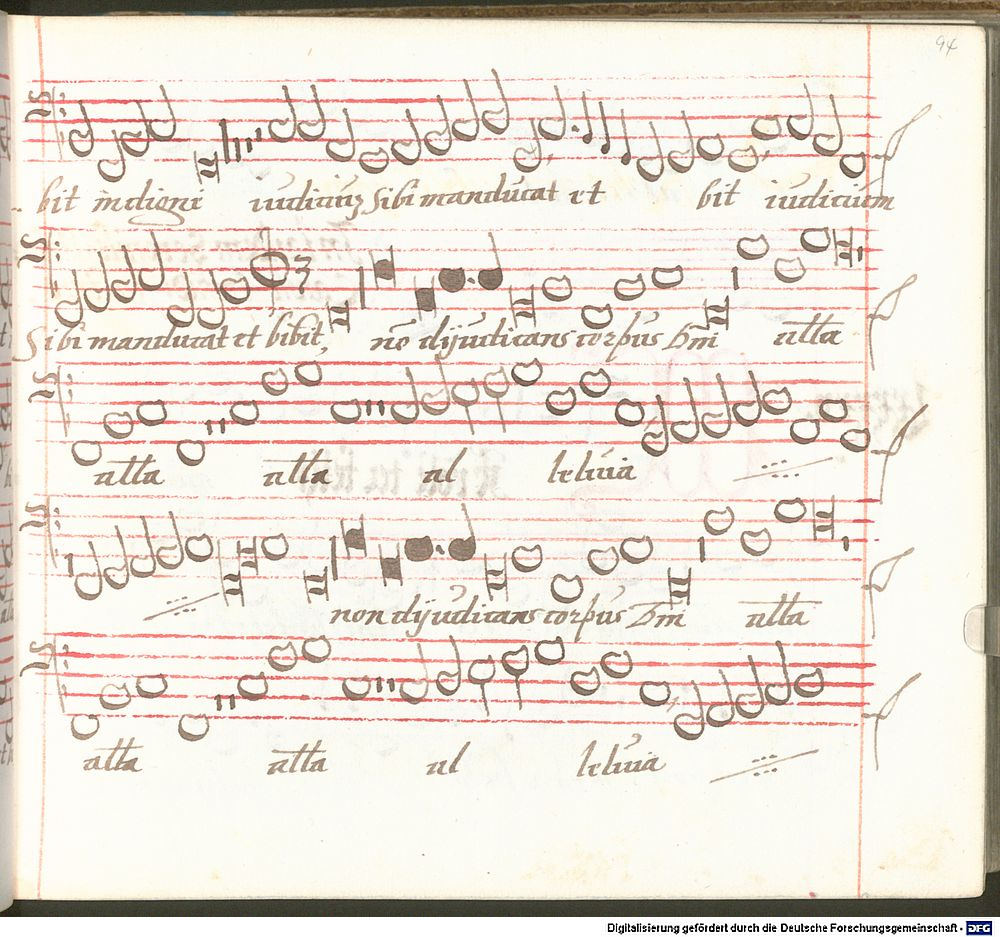 94
bit indigne iudiciuʒ sibi manducat et bit iudicium
Sibi manducat et bibit, nō dijudicans corpus Dm̄i alla
alla alla al leluia
non dijudicans corpus Dm̄i alla
alla alla al leluia
Digitalisierung gefördert durch die Deutsche Forschungsgemeinschaft - DFG